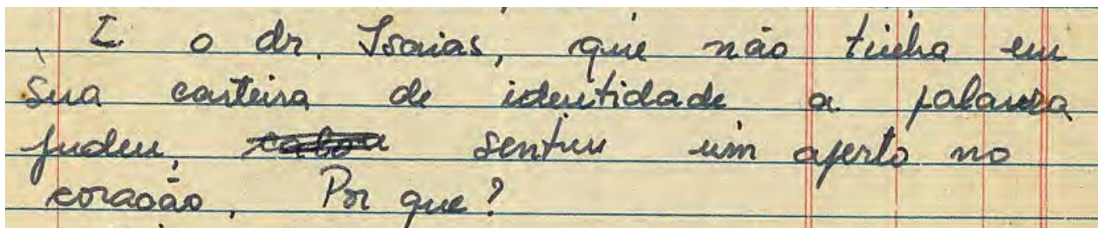 E o dr. Isaias, que não tinha em
sua carteira de identidade a palavra
judeu, sentiu um aperto no
coração. Por que?